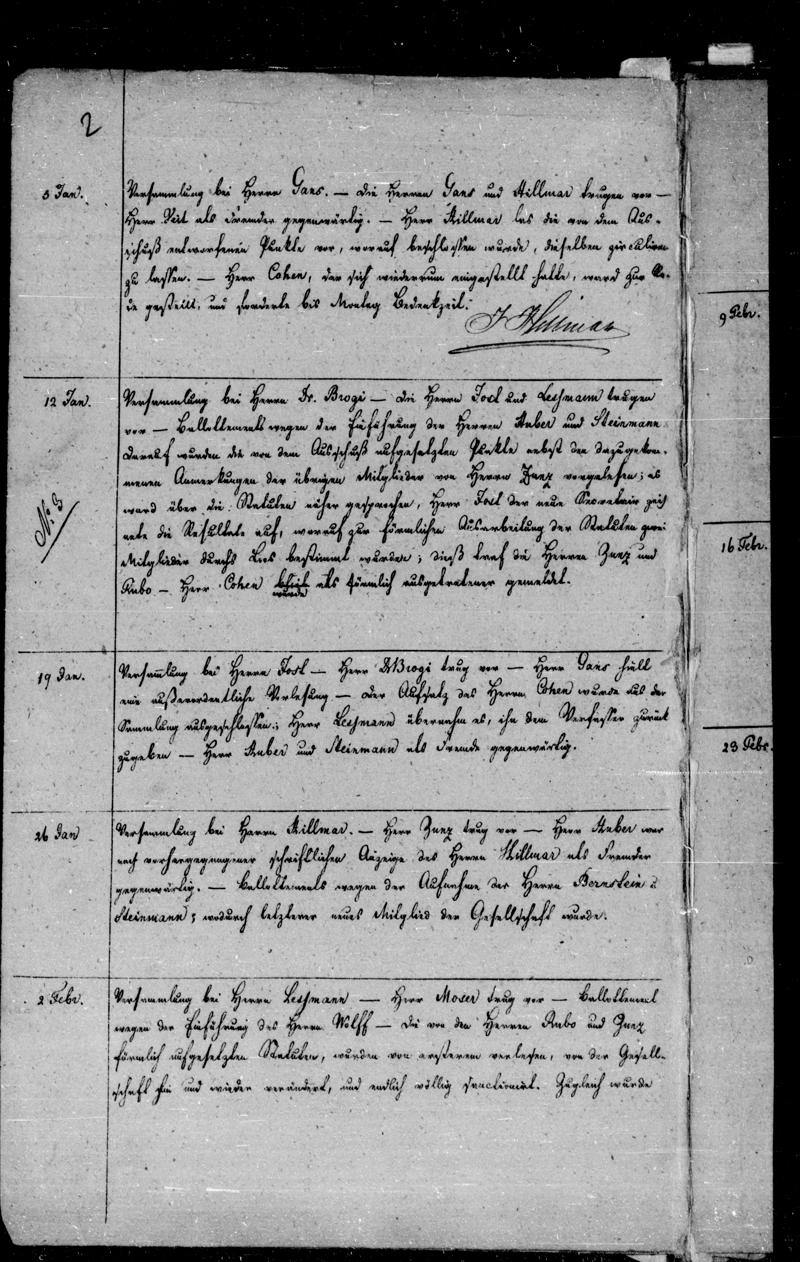 2
5 Jan.
Versammlung bei Herrn Gans. — die Herren Gans und Hillmar trugen vor —
Herr Veit als Fremder gegenwärtig. — Herr Hillmar las die von dem Aus-
schuß entworfenen Punkte vor, worauf beschlossen wurde, dieselben zirculiren
zu lassen. — Herr Cohen, der sich wiederum eingestellt hatte, ward zur Re-
de gestellt, und forderte bis Montag Bedenkzeit.
J Hillmar
12 Jan.
Versammlung bei Herrn Dr. Brogi — die Herrn Jost und Leßmann trugen
vor — Ballottements wegen der Einführung der Herren Auber und Steinmann
darauf wurden die von dem Ausschuß aufgesetzten Punkte nebst den dazugekom-
menen Anmerkungen der übrigen Mitglieder von Herrn Zunz vorgelesen; es
ward über die Statuten näher gesprochen, Herr Jost der neue Secretair zeich
nete die Resultate auf, worauf zur förmlichen Ausarbeitung der Statuten zwei
Mitglieder durchs Loos bestimmt wurden; dieß traf die Herren Zunz und
Rubo — Herr Cohen wurde als förmlich ausgetretener gemeldet.
No. 3
19 Jan.
Versammlung bei Herrn Jost — Herr Dr Brogi trug vor — Herr Gans hielt
eine außerordentliche Vorlesung — der Aufsatz des Herrn Cohen wurde aus der
Sammlung ausgeschlossen; Herr Leßmann übernahm es, ihn dem Verfasser zurück
zugeben — Herr Auber und Steinmann als Fremde gegenwärtig.
26 Jan
Versammlung bei Herrn Hillmar. — Herr Zunz trug vor — Herr Auber war
nach vorhergegangener schriftlichen Anzeige des Herrn Hillmar als Fremder
gegenwärtig. — Ballottements wegen der Aufnahme der Herrn Bernstein u
Steinmann; wodurch letzterer neues Mitglied der Gesellschaft wurde.
2 Febr.
Versammlung bei Herrn Leßmann — Herr Moser trug vor — Ballottement
wegen der Einführung des Herrn Wolff — die von den Herren Rubo und Zunz
förmlich aufgesetzten Statuten, wurden von ersterem verlesen, von der Gesell-
schaft hin und wieder verändert, und endlich völlig sanctionirt. Zugleich wurde
9 Febr.
16 Febr.
23 Febr.